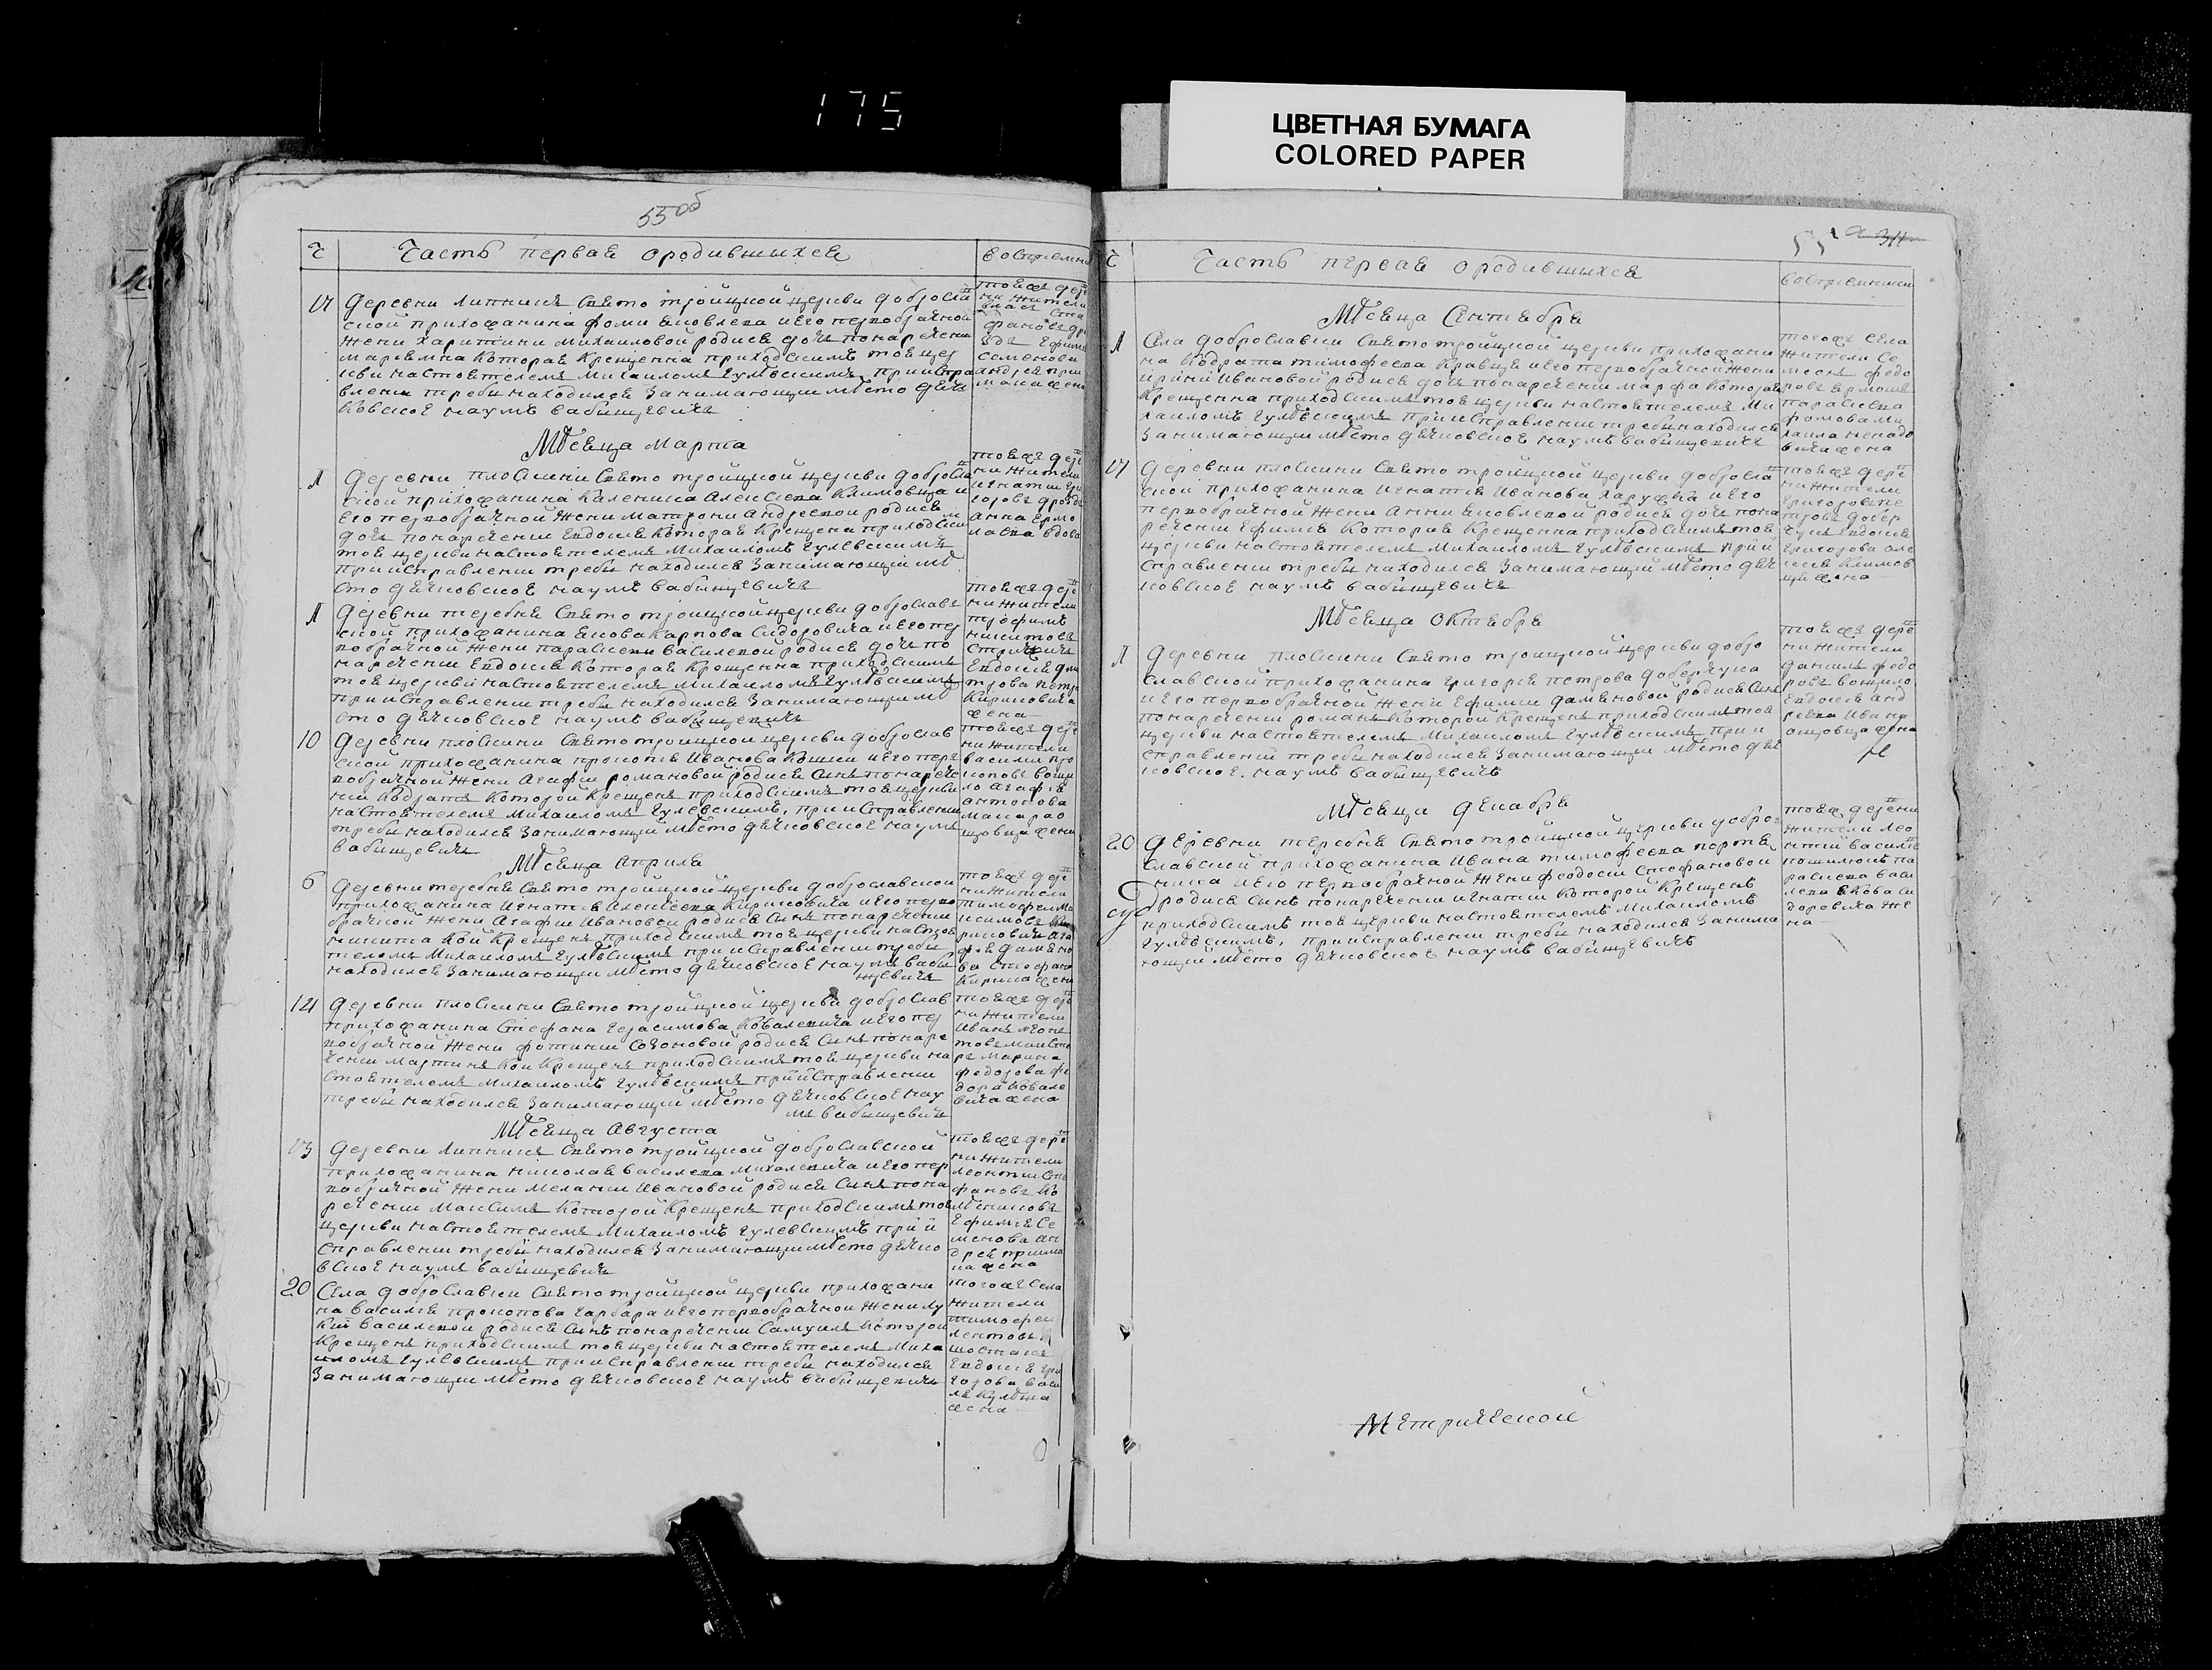 175
ЦВЕТНАЯ БУМАГА
COLORED PAPER
55об
Ч
Часть первая ородившыхся
воспріемни
Деревни Липники Свято тройцкой церкви доброслав
ской прихожанина фоми Яковлева иего первобрачной
жени харитини Михаиловой родися дочь понаречени
Мариямна Которая Крещенна приходскимъ тоя цер
кви настоятелемъ Михаиломъ Гулѣвскимъ приисправ
влени треби находился Занимающии мѣсто дячь
ковское наумъ Бабищевичь
тояжъ дере
ни жители
Власъ Сте
фановъ
Ефимия
Семенова
андрея при
мака жена
Мѣсяца Марта
1
Деревни плоскини Свято тройцкой церкви доброслав
ской прихожанина Каленика Алексеева Климовца и
его первобрачной жени матрони Андреевой родися
дочь понаречени Евдокия Которая Крещена приходским
тоя церкви настоятелемъ Михаиломъ Гулевскимъ
приисправлени треби находился Занимающии мѣ
сто дячковское наумъ Бабищевичь
тояжъ дере
ни жители
игнати гри
горовъ дрозд
анна Ермо
лаева вдова
1
Деревни теребня Свято тройцкой церкви дoброславъ
ской прихожанина якова Карпова Сидоровича иего пер
вобрачной жени параскеви василевой родися дочь по
наречени Евдокия Которая Крещенна приходскимъ
тоя церкви настоятелемъ Михаиломъ Гулѣвскимъ
приисправлени треби находился Занимающии мѣ
сто дячковское наумъ Бабищевичь
тояжъ дере
ни жители
трофимъ
никитовъ
Евдокия дми
трова петра
Кириковича
жена
10
Деревни плоскини Свято тройцкой церкви доброслав
ской прихожанина прокопия Иванова Кошки иего пер
вобрачной жени Агафии романовой родися Синъ понарече
ни Кодратъ Которой Крещенъ приходскимъ тояцеркви
настоятелемъ Михаиломъ Гулевскимъ, при исправлени
треби находился Занимающии мѣсто дячковское наумъ
Бабищевичь
тояжъ дере
ни жители
василии про
коповъ вощи
ло агафия
антонова
жена
Мѣсяца Априля
6
Деревни теребня Свято тройцкой церкви доброславской
прихожанина Игнатия Алексеева Кириковича иего перво
брачной жени Агафии Ивановой родися Синъ понаречени
никита Кой Крещенъ приходскимъ тоя церкви настоя
телемъ Михаиломъ Гулѣвскимъ при исправлени треби
находился Занимающии мѣсто дячковское наумъ Баби
щевичь
тояжъ дере
ни жители
тимофеи Ма
ксимовъ Ки
риковичь ага
фия дамяно
ва Стефана
Кирика жена
14
Деревни плоскини Свято тройцкой церкви доброслав
прихожанина Стефана Герасимова Ковалевича иего пер
вобрачной жени фотинии Созоновой родися Синъ понаре
чени мартинъ Кои Крещенъ приходскимъ тоя церкви на
стоятелемъ Михаиломъ Гулѣвскимъ приисправлени
треби находился Занимающии мѣсто дячковское нау
мъ Бабищевичь
тояжъ дере
ни жители
Иванъ леон
Марина
федорова фе
дора Ковале
вича жена
Мѣсяца Августа
13
Деревни Липники Свято тройцкой доброславской
прихожанина николая василева Михалевича иего пер
вобрачной жени Мелании Ивановой родися Синъ пона
речени Максимъ Которой Крещенъ приходскимъ тоя
церкви настоятелемъ Михаиломъ Гулевскимъ при и
справлени треби находился Занимающии мѣсто дячко
вское наумъ Бабищевичь
тояжъ дере
ни жители
леонтии Сте
фановъ
Ефимия Се
менова ан
дрея прима
ка жена
20
Села доброславки Свято тройцкой церкви прихожани
на василия прокопова Гарбара иего первобрачной жени лу
кии василевой родися Синъ понаречени Самуилъ Которой
Крещенъ приходскимъ тоя церкви настоятелемъ Миха
иломъ Гулевскимъ при исправлени треби находился
Занимающии мѣсто дячковское наумъ Бабищевичь
тогожъ Села
жители
тимофеи
Евдокия гри
горова васи
ля
жена
Ч
Часть первая ородившыхся
воспріемники
Мѣсяца Сентября
1
Села доброславки Свято тройцкой церкви прихожани
на Кодрата тимофеева Кравца иего первобрачной жени
ирини Ивановой родися дочь понаречени марфа Которая
Крещенна приходскимъ тоя церкви настоятелемъ Ми
хаиломъ Гулѣвскимъ приисправлени треби находился
Занимающии мѣсто дячковское наумъ Бабищевичь
тогожъ Села
жители Се
меонъ федо
ровъ
параскева
фомова ми
хаила
вича жена
Деревни плоскини Свято тройцкой церкви доброслав
ской прихожанина Игнатия Иванова иего
первобрачной жени Анни Яковлевой родися дочь пона
речени Ефимия Которая Крещенна приходскимъ тоя
церкви настоятелемъ Михаиломъ Гулѣвскимъ при и
справлени треби находился Занимающии мѣсто дяч
ковское наумъ Бабищевичь
тояжъ дере
ни жители
Григории пе
тровъ добер
Евдокия
Григорова але
ксея Климов
ца жена
Мѣсяца Октября
1
Деревни плоскини Свято тройцкой церкви добро
славской прихожанина Григория петрова доберчука
иего первобрачной жени Ефимии дамяновой родися Синъ
понаречени романъ Которой Крещенъ приходскимъ тоя
церкви настоятелемъ Михаиломъ Гулѣвскимъ при и
справлени треби находился Занимающии мѣсто дяч
ковское. наумъ Бабищевичь
тояжъ дере
ни жители
данила федо
ровъ вощило
Евдокия анд
реева Ивана
жена
Мѣсяца Декабря
20
Деревни теребня Свято тройцкой церкви добро
славской прихожанина Ивана тимофеева портя
ника иего первобрачной жени феодосии Стефановой
родися Синъ понаречени игнатии Которой Крещенъ
приходскимъ тоя церкви настоятелемъ Михаиломъ
Гулѣвскимъ, приисправлени треби находился Занима
ющии мѣсто дячковское наумъ Бабищевичь
тояж деревни
жители лео
нтии василе
па
раскева васи
лева якова Си
доровича же
на
Метрической